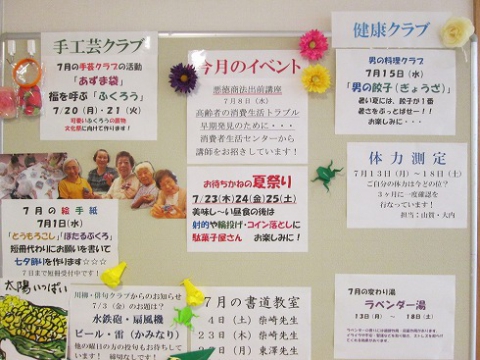 手工芸クラブ
7月の手芸クラブの活動
「あずま袋」
福を呼ぶ「ふくろう」
7/20(月)・21(火)
可愛いふくろうの置物
文化祭に向けて作ります!
7月の絵手紙
7月1日(水)
「とうもろこし」「ほたるぶくろ」
短冊代わりにお願いを書いて
七夕飾りを作ります☆☆☆
7日まで短冊受付中です!
太陽いっぱい
今月のイベント
悪徳商法出前講座
7月8日(水)
高齢者の消費生活トラブル
早期発見のために・・・
消費者生活センターから
講師をお招きしています!
お待ちかねの夏祭り
7/23(木)24(金)25(土)
美味し~い昼食の後は
射的や輪投げ・コイン落としに
駄菓子屋さん お楽しみに!
川柳・俳句クラブからのお知らせ
7/3(金)のお題は?
水鉄砲・扇風機
ビール・雷(かみなり)
他の曜日の方の投句もお待ちして
います! 締切なしです!
7月の書道教室
4日(土) 柴崎先生
23日(木) 柴崎先生
日(月) 東澤先生
健康クラブ
男の料理クラブ
7月15日(水)
「男の餃子(ぎょうざ)」
暑い夏には、餃子が1番
暑さをぶっとばせー!!
お楽しみに・・・
体力測定
7月13日(月)~18日(土)
ご自分の体力は今どの位?
3ヶ月に一度確認を
行なっています!
担当:山賀・大内
7月の変わり湯
ラベンダー湯
13日(月) ~ 18日(土)